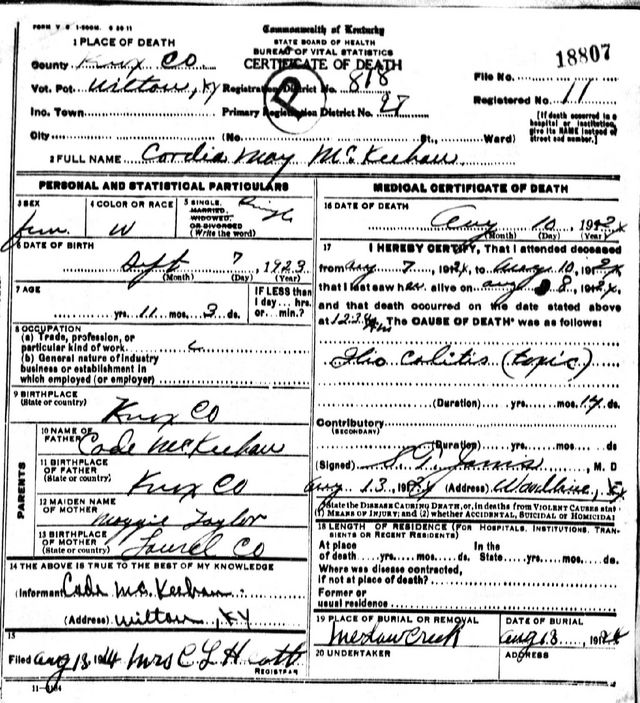 FORM V S 1-500M. 6 20 11
Commonwealth of Kentucky
STATE BOARD OF HEALTH
BUREAU OF VITAL STATISTICS
CERTIFICATE OF DEATH
1 PLACE OF DEATH
County Knox Co
Vot. Pct. Wilton, Ky Registration District No. 818
File No. 18807
Inc. Town Primary Registration District No. 27
Registered No. 11
City (No. St., Ward)
[If death occurred in a hospital or institution, give its NAME instead of street and number.]
2 FULL NAME Cordia May McKeehan
PERSONAL AND STATISTICAL PARTICULARS
3 SEX Fem
4 COLOR OR RACE W
5 SINGLE, MARRIED, WIDOWED, OR DIVORCED (Write the word) Single
6 DATE OF BIRTH
Sept 7, 1923
(Month) (Day) (Year)
7 AGE
yrs. 11 mos. 3 ds.
IF LESS than 1 day... hrs. or min.?
8 OCCUPATION
(a) Trade, profession, or particular kind of work
(b) General nature of industry business or establishment in which employed (or employer)
9 BIRTHPLACE
(State or country) Knox Co
PARENTS
10 NAME OF FATHER Cade McKeehan
11 BIRTHPLACE OF FATHER
(State or country) Knox Co
12 MAIDEN NAME OF MOTHER Maggie Taylor
13 BIRTHPLACE OF MOTHER
(State or country) Laurel Co
14 THE ABOVE IS TRUE TO THE BEST OF MY KNOWLEDGE
(Informant Cade McKeehan
(Address) Wilton, Ky
15
Filed Aug 13, 1914 Mrs C L
REGISTRAR
11-
MEDICAL CERTIFICATE OF DEATH
16 DATE OF DEATH
Aug 10, 191
(Month) (Day) (Year)
17 I HEREBY CERTIFY, That I attended deceased
from Aug 7, 191 , to Aug 10, 191
that I last saw her alive on Aug 8, 191
and that death occurred on the date stated above
at The CAUSE OF DEATH* was as follows:
Ilio Colitis (toxic)
(Duration) yrs. mos. 14 ds.
Contributory
(SECONDARY)
(Duration) yrs. mos. ds
(Signed) , M. D
Aug 13, 191 (Address) Woodbine, Ky
*State the DISEASE CAUSING DEATH, or, in deaths from VIOLENT CAUSES state (1) MEANS OF INJURY; and (2) whether ACCIDENTAL, SUICIDAL or HOMICIDAL
18 LENGTH OF RESIDENCE (FOR HOSPITALS, INSTITUTIONS, TRANSIENTS OR RECENT RESIDENTS)
At place of death yrs. mos. ds. In the State yrs. mos. ds.
Where was disease contracted, if not at place of death?
Former or usual residence
19 PLACE OF BURIAL OR REMOVAL
Creek
DATE OF BURIAL
Aug 13, 191
20 UNDERTAKER
ADDRESS